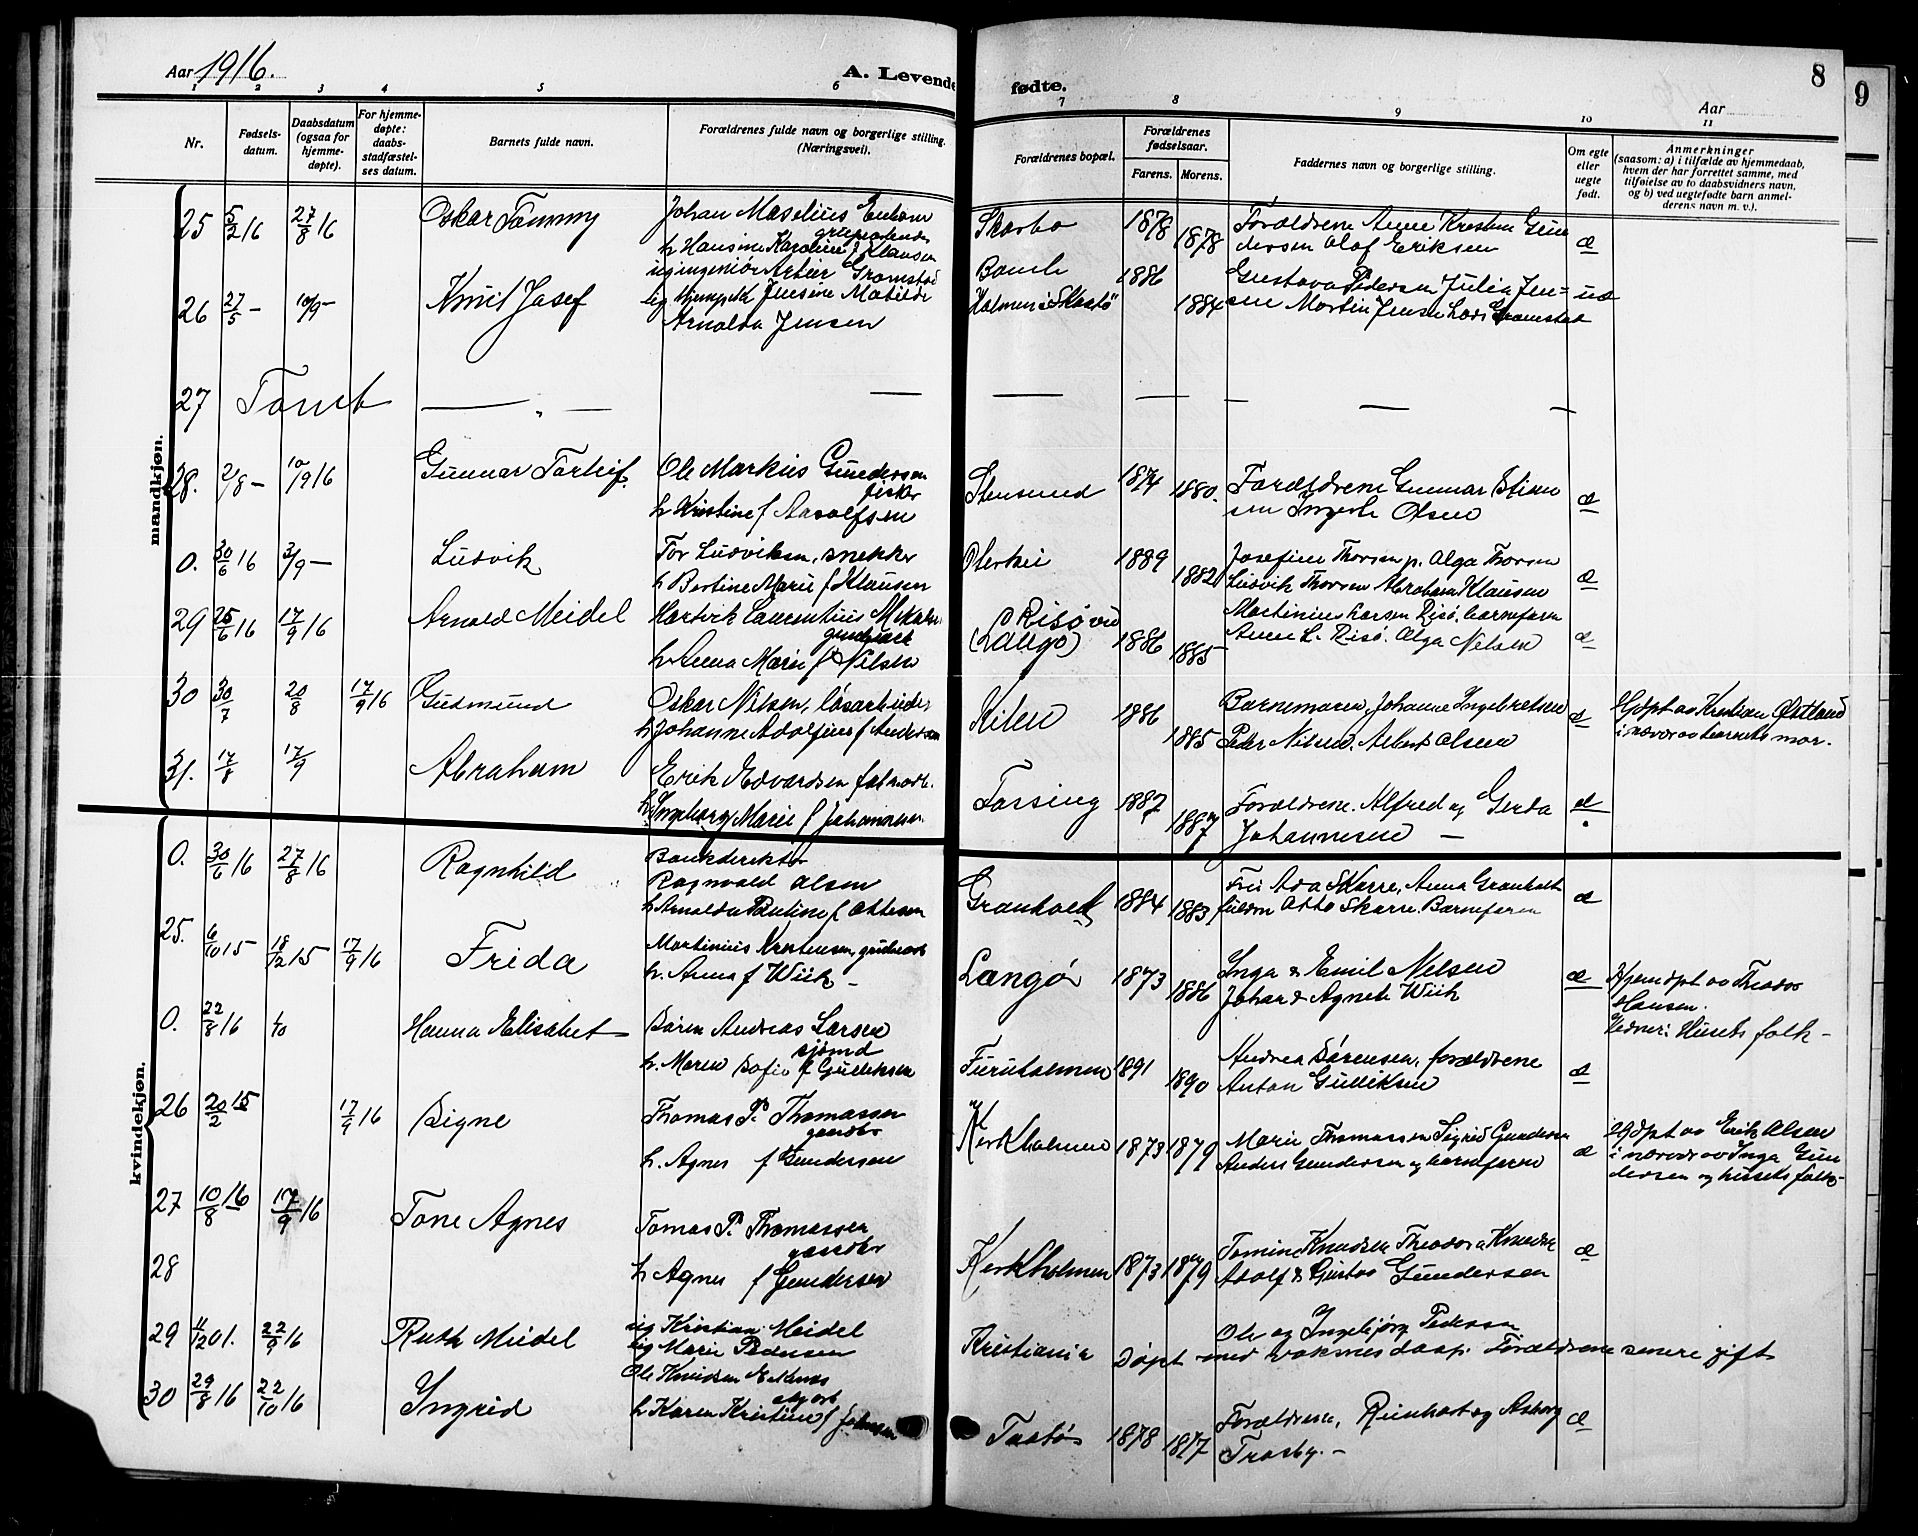 Aar 1916.
A. Levende fødte.
8
9
Aar
1 2 3 4 5 6 7 8 9 10 11
Nr.
Fødsels-
datum.
Daabsdatum
(ogsaa for
hjemme-
døpte).
For hjemme-
døpte:
daabs-
stadfæstel-
ses datum.
Barnets fulde navn.
Forældrenes fulde navn og borgerlige stilling.
(Næringsvei).
Forældrenes bopæl.
Forældrenes
fødselsaar.
Farens. Morens.
Faddernes navn og borgerlige stilling.
Om egte
eller
uegte
født.
Anmerkninger
(saasom: a) i tilfælde av hjemmedaab,
hvem der har forrettet samme, med
tilføielse av to daabsvidners navn,
og b) ved uegtefødte barn anmel-
derens navn m. v.).
mandkjøn.
25 5/2 16 27/8 16 Oskar Tommy Johan
h Hansine Karoline f Klausen
1878 1878 Forældrene Anne Kristine Gun
dersen Olaf Eriksen æ
26 27/5 – 10/9 – Knut Josef
ug ingeniør Gromstad
Jensine Matilde
Arnolda Jensen
1886 1884 Gustava Pedersen Julia Jen-
sen Martin Jensen Lars Gromstad uæ
27 Tomt — „ — — — — — — —
28. 2/8 – 10/9 16 Gunnar Torleif. Ole Markus Gundersen
fisker
h Kristine f Aadolfsen
Stensund 1874 1880. Forældrene Gunnar Stian
sen Olsen æ
0. 30/6 16 3/9 – Ludvik Tor Ludviksen, snekker
h Bertine Marie f Klausen
1889 1882 Josefine Thorsen p. Alga Thorsen
Ludvik Thorsen Abraham Klausen æ
29 25/6 16 17/9 16 Arnold Meidel Hartvik Laurentius
h Anna Marie f Nilsen
Risø ved
(Langø) 1886 1885 Martinius Larsen Risø. barnefaren
Anne L. Risø. Alga Nelsen æ
30 30/7 20/8 17/9 16 Gudmund Oskar Nilsen, løsarbeider
h Johanne Adolfine f Andersen
Kilen 1886 1885 Barnemoren, Johanne Ingebretsen
Peder Nilsen. Albert Olsen æ
Hjdpt av Kristian Østland
i nævær av barnets mor.
31. 17/8 17/9 Abraham Erik Edvardsen
h. Ingeborg Marie f Johannesen
Tossing 1887 1887 Forældrene. Alfred og Gerda
Johannesen — æ
kvindekjøn.
0. 30/6 16 27/8 16 Ragnhild Bankdirektør
Ragnvald Olsen
h Arnolda Pauline f Ottesen
Granholt 1884 1883 Fru Ada Skarre, Anna Granholt
Otto Skarre. Barnefaren æ
25. 6/10 15 18/12 15 17/9 16 Frida Martinius Kristensen,
h. Anna f Wiik –
Langø 1873 1886 Inga & Emil Nelsen
Johan & Agnete Wiik æ
Hjemdpt av Theodor
Hansen.
Vidner: Husets folk –
0. 22/8 16 1/10 Hanna Elisabet Søren Andreas Larsen
sjømd
h. Maren Sofie f Gulliksen
Furuholmen 1891 1890 Andrea Sørensen, forældrene
Anton Gulliksen æ
26 20/2 15 17/9 16 Signe Thomas P. Thomassen
h. Agnes f Gundersen
Kirkholmen 1873 1879 Marie Thomassen Sigrid Gundersen
Anders Gundersen og barnefaren æ
Hjdpt av Erik Olsen
i nævær av Inga Gun
dersen og husets folk –
27 10/8 16 17/9 16 Tone Agnes Tomas P. Thomassen
h Agnes f Gundersen
28
Kirkholmen 1873 1879 Tomine Knudsen Theodora Knudsen
Adolf & Gustav Gundersen æ
29 11/12 01. 22/9 16 Ruth Meidel ug Kristian Meidel
ug Marie Pedersen
Kristiania Ole og Ingebjørg Pedersen
Døpt med voksnes daap. Forældrene senere gift
30 29/8 16 22/10 16 Ingrid Ole Knudsen
h Karen Kristine f Johnsen
1878 1877 Forældrene, Reinhart og Asborg
Trosby. – æ